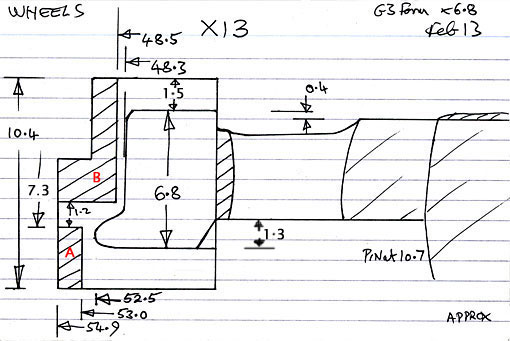 WHEELS
X13
G3 form x6.8
Feb 13
48.5
48.3
1.5
0.4
10.4
B
7.3
1.2
6.8
A
1.3
Pinat 10.7
52.5
53.0
54.9
APPROX